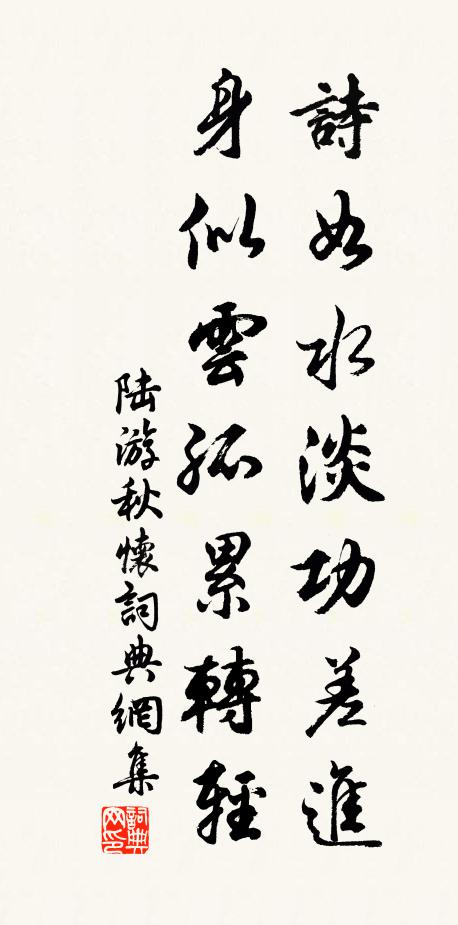 詩如水淡功差進
身似雲孤累轉輕
陆游秋懷詞典網集
詞典
网印